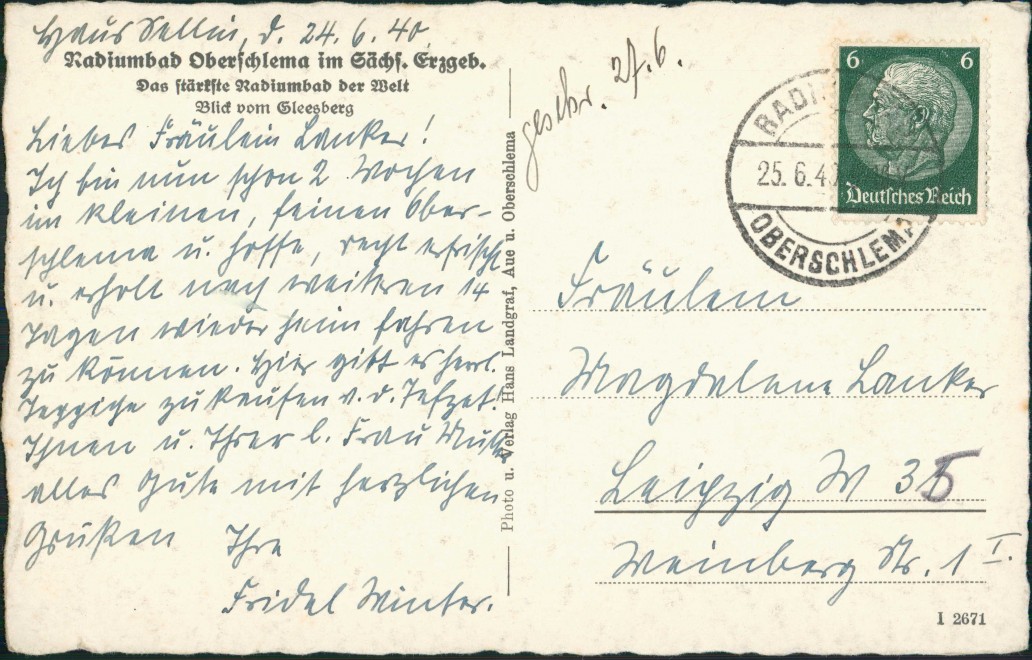 Haus Sellin, d. 24.6.40.
Radiumbad Oberschlema im Sächs. Erzgeb.
Das stärkste Radiumbad der Welt
Blick vom Gleesberg
Liebes Fräulein Lanker!
Ich bin nun schon 2 Wochen
im kleinen, feinen Ober-
schlema u. hoffe, recht erfrischt
u. erholt nach weiteren 14
Tagen wieder heim fahren
zu können. Hier gibt es herrl.
Teppiche zu kaufen v. d.
Ihnen u. Ihrer l. Frau Mutter
alles Gute mit herzlichen
Grüßen Ihre
Fridel Winter.
Photo u. Verlag Hans Landgraf, Aue u. Oberschlema
geschr. 27.6.
6 6
Deutsches Reich
RADI
25.6.40
OBERSCHLEMA
Fräulein
Magdalene Lanker
Leipzig W 35
Weinberg Str. 1 I.
I 2671